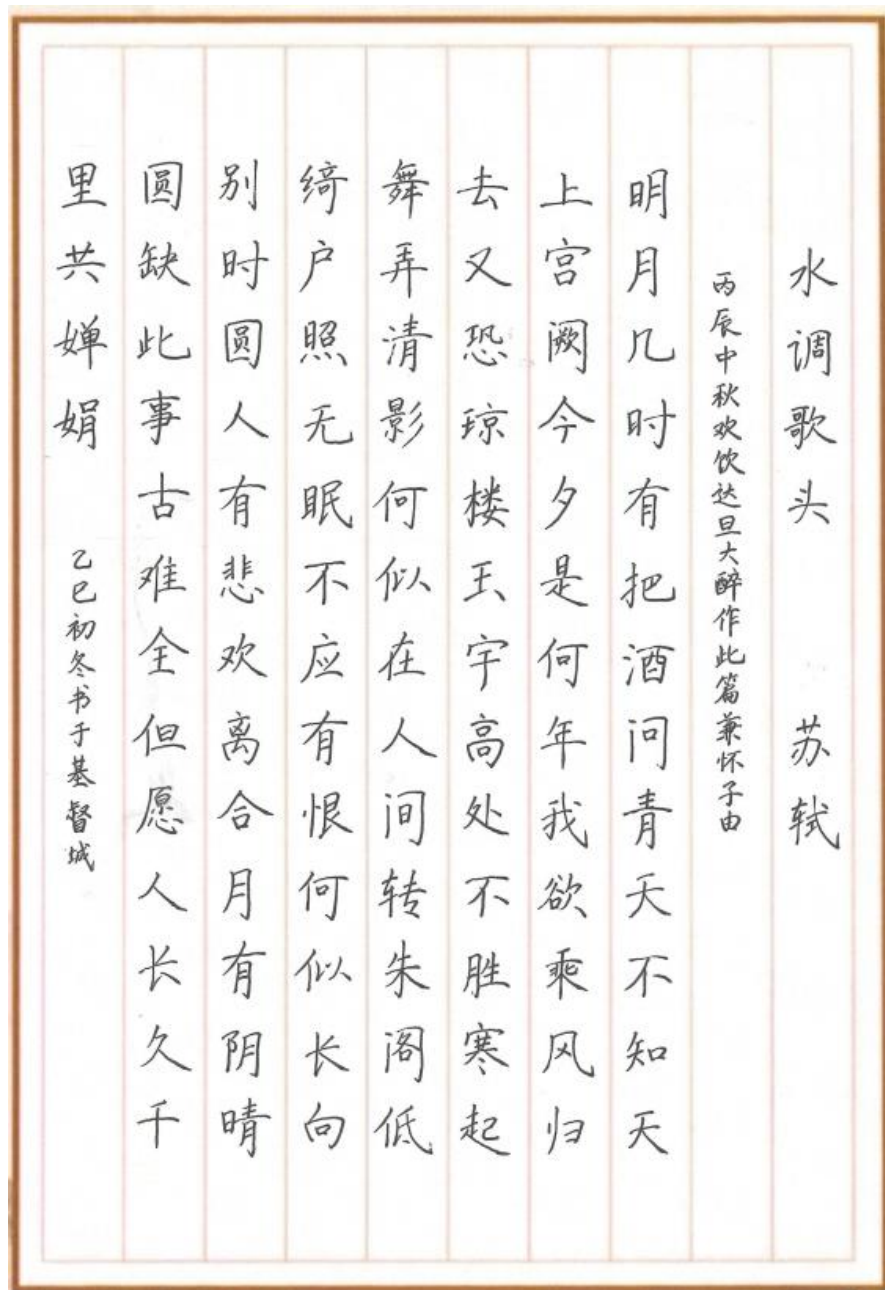 水调歌头 苏轼
丙辰中秋欢饮达旦大醉作此篇兼怀子由
明月几时有把酒问青天不知天
上宫阙今夕是何年我欲乘风归
去又恐琼楼玉宇高处不胜寒起
舞弄清影何似在人间转朱阁低
绮户照无眠不应有恨何似长向
别时圆人有悲欢离合月有阴晴
圆缺此事古难全但愿人长久千
里共婵娟
乙巳初冬书于基督城